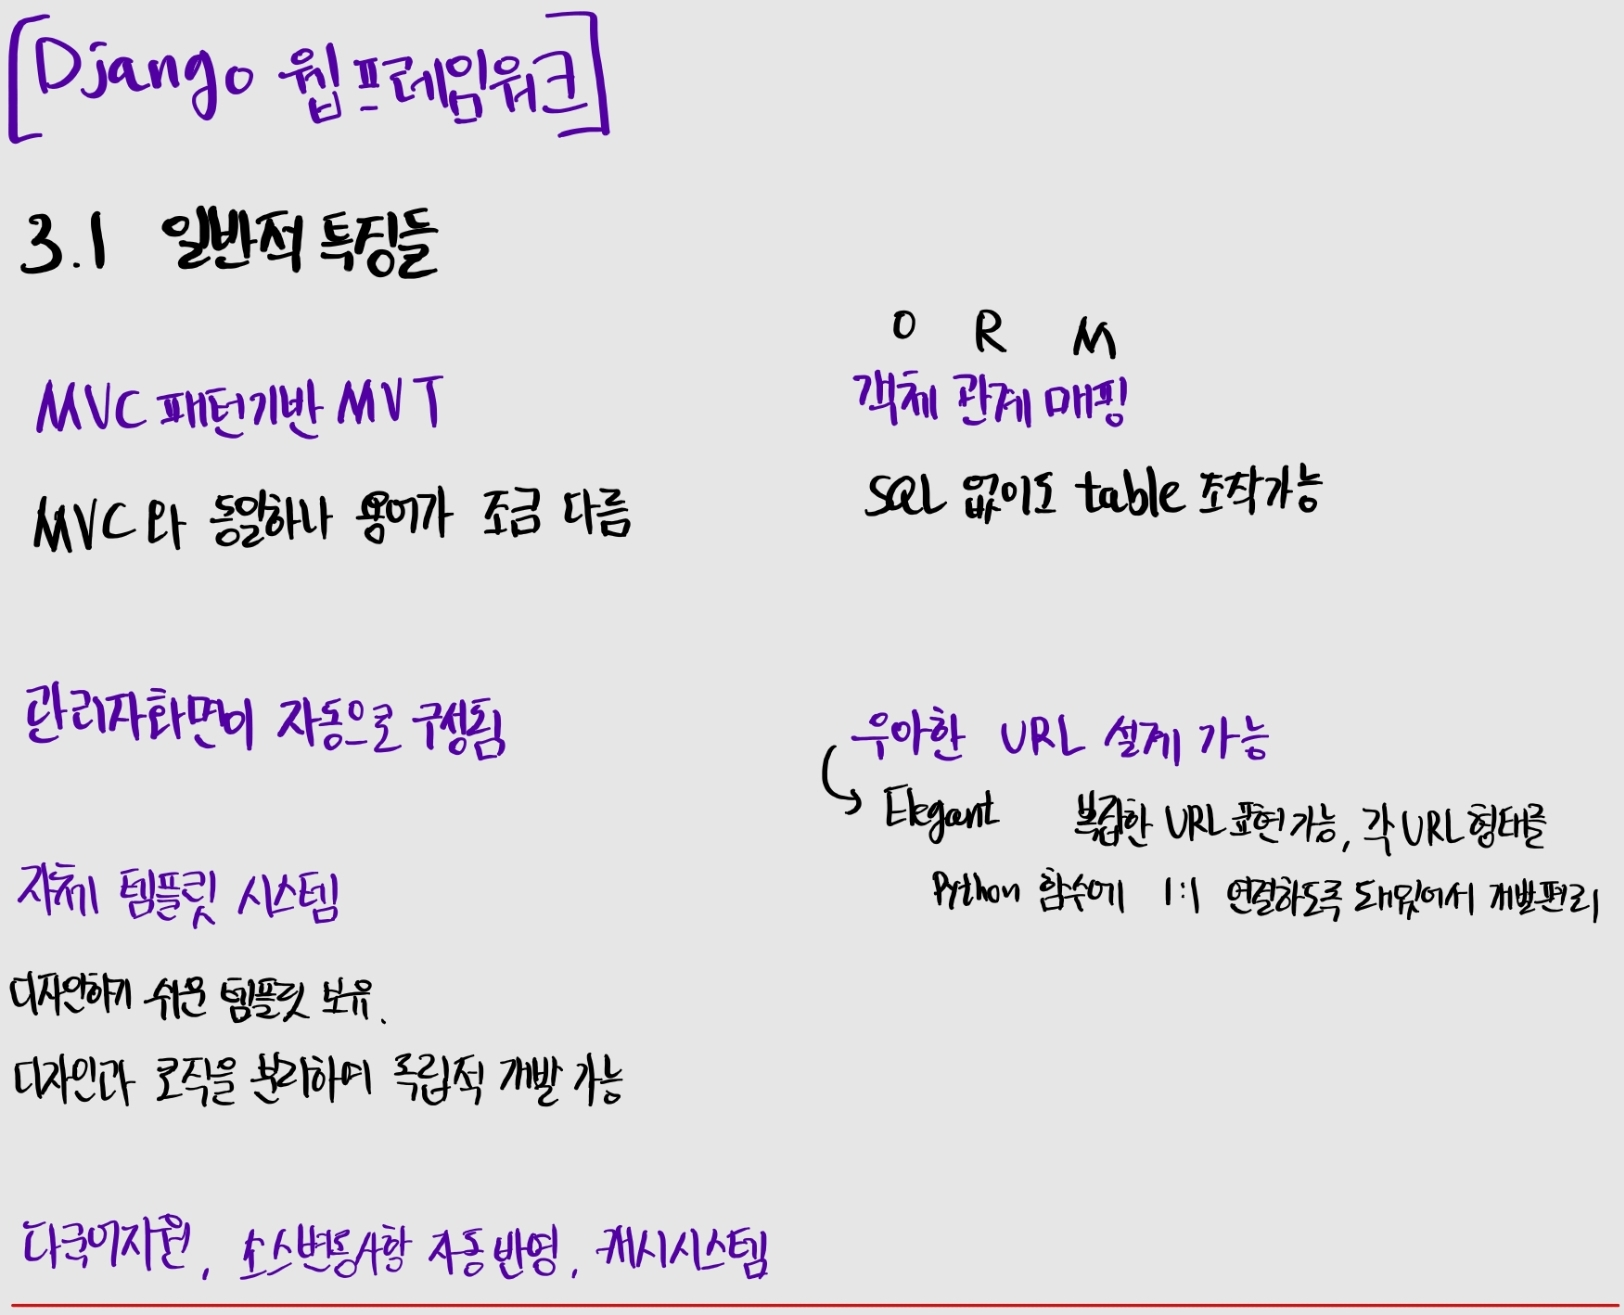 [Django 웹프레임워크]
3.1 일반적 특징들
MVC 패턴기반 MVT
MVC와 동일하나 용어가 조금 다름
O R M
객체 관계 매핑
SQL 없이도 table 조작가능
관리자화면이 자동으로 구성됨
우아한 URL 설계 가능
Elegant 복잡한 URL 표현 가능, 각 URL 형태를
Python 함수에 1:1 연결하도록 돼있어서 개발편리
자체 템플릿 시스템
디자인하기 쉬운 템플릿 보유.
디자인과 로직을 분리하여 독립적 개발 가능
다국어지원, 소스변동사항 자동반영, 캐시시스템